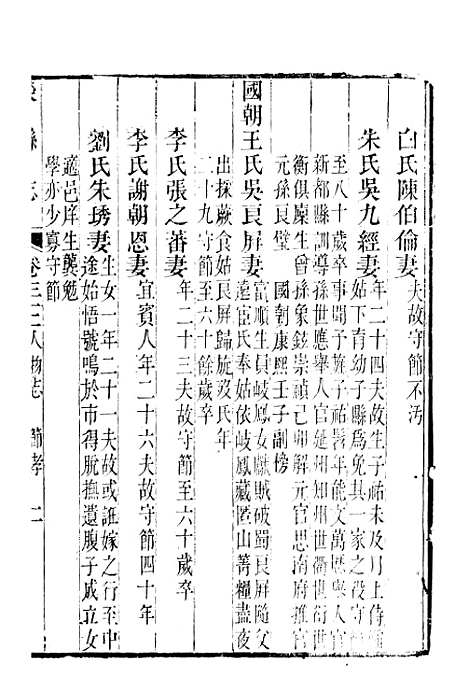 白氏陳伯倫妻夫故守節不污
朱氏吳九經妻年二十四夫故生子祐未及月上侍
姑下育幼子縣爲免其一家之役守
至八十歲卒事聞予旌子祐髫年能文萬歷舉人官
新都縣訓導孫世應舉人官延州知州世衢衍世
衡俱廩生曾孫象鉉崇禎己卯解元官思南府推官
元孫良璧 國朝康熙壬子副榜
國朝王氏吳良屏妻富順生員岐鳳女獻賊破蜀良屏隨父
遠宦氏奉姑依岐鳳藏匿山菁糧盡夜
出採蕨食姑良屏歸旋歿氏年
二十九守節至六十餘歲卒
李氏張之蕃妻年二十三夫故守節至六十歲卒
李氏謝朝恩妻宜賓人年二十六夫故守節四十年
劉氏朱琇妻生女一年二十一夫故或誑嫁之行至中
途始悟號鳴於市得脫撫遺腹子成立女
適邑庠生龔勉
學亦少寡守節
縣志 卷三二 人物志 節孝 二